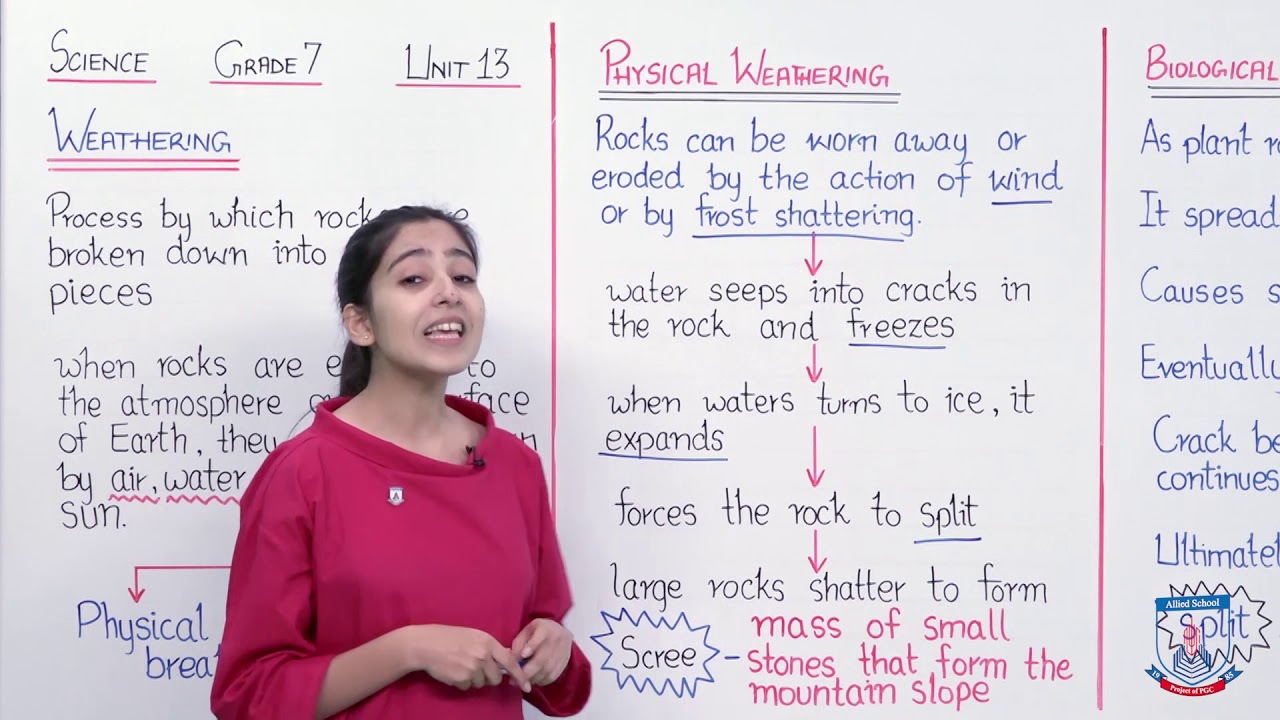 SCIENCE GRADE 7 UNIT 13
WEATHERING
Process by which
broken down into
pieces
when rocks are
the atmosphere
of Earth, they
by air, water
sun.
Physical
PHYSICAL WEATHERING
Rocks can be worn away or
eroded by the action of wind
or by frost shattering.
water seeps into cracks in
the rock and freezes
when waters turns to ice, it
expands
forces the rock to split
large rocks shatter to form
Scree - mass of small
stones that form the
mountain slope
BIOLOGICAL
As plant
It spread
Causes
Eventually
Crack
continues
split
Allied School
1985
Project of PGC